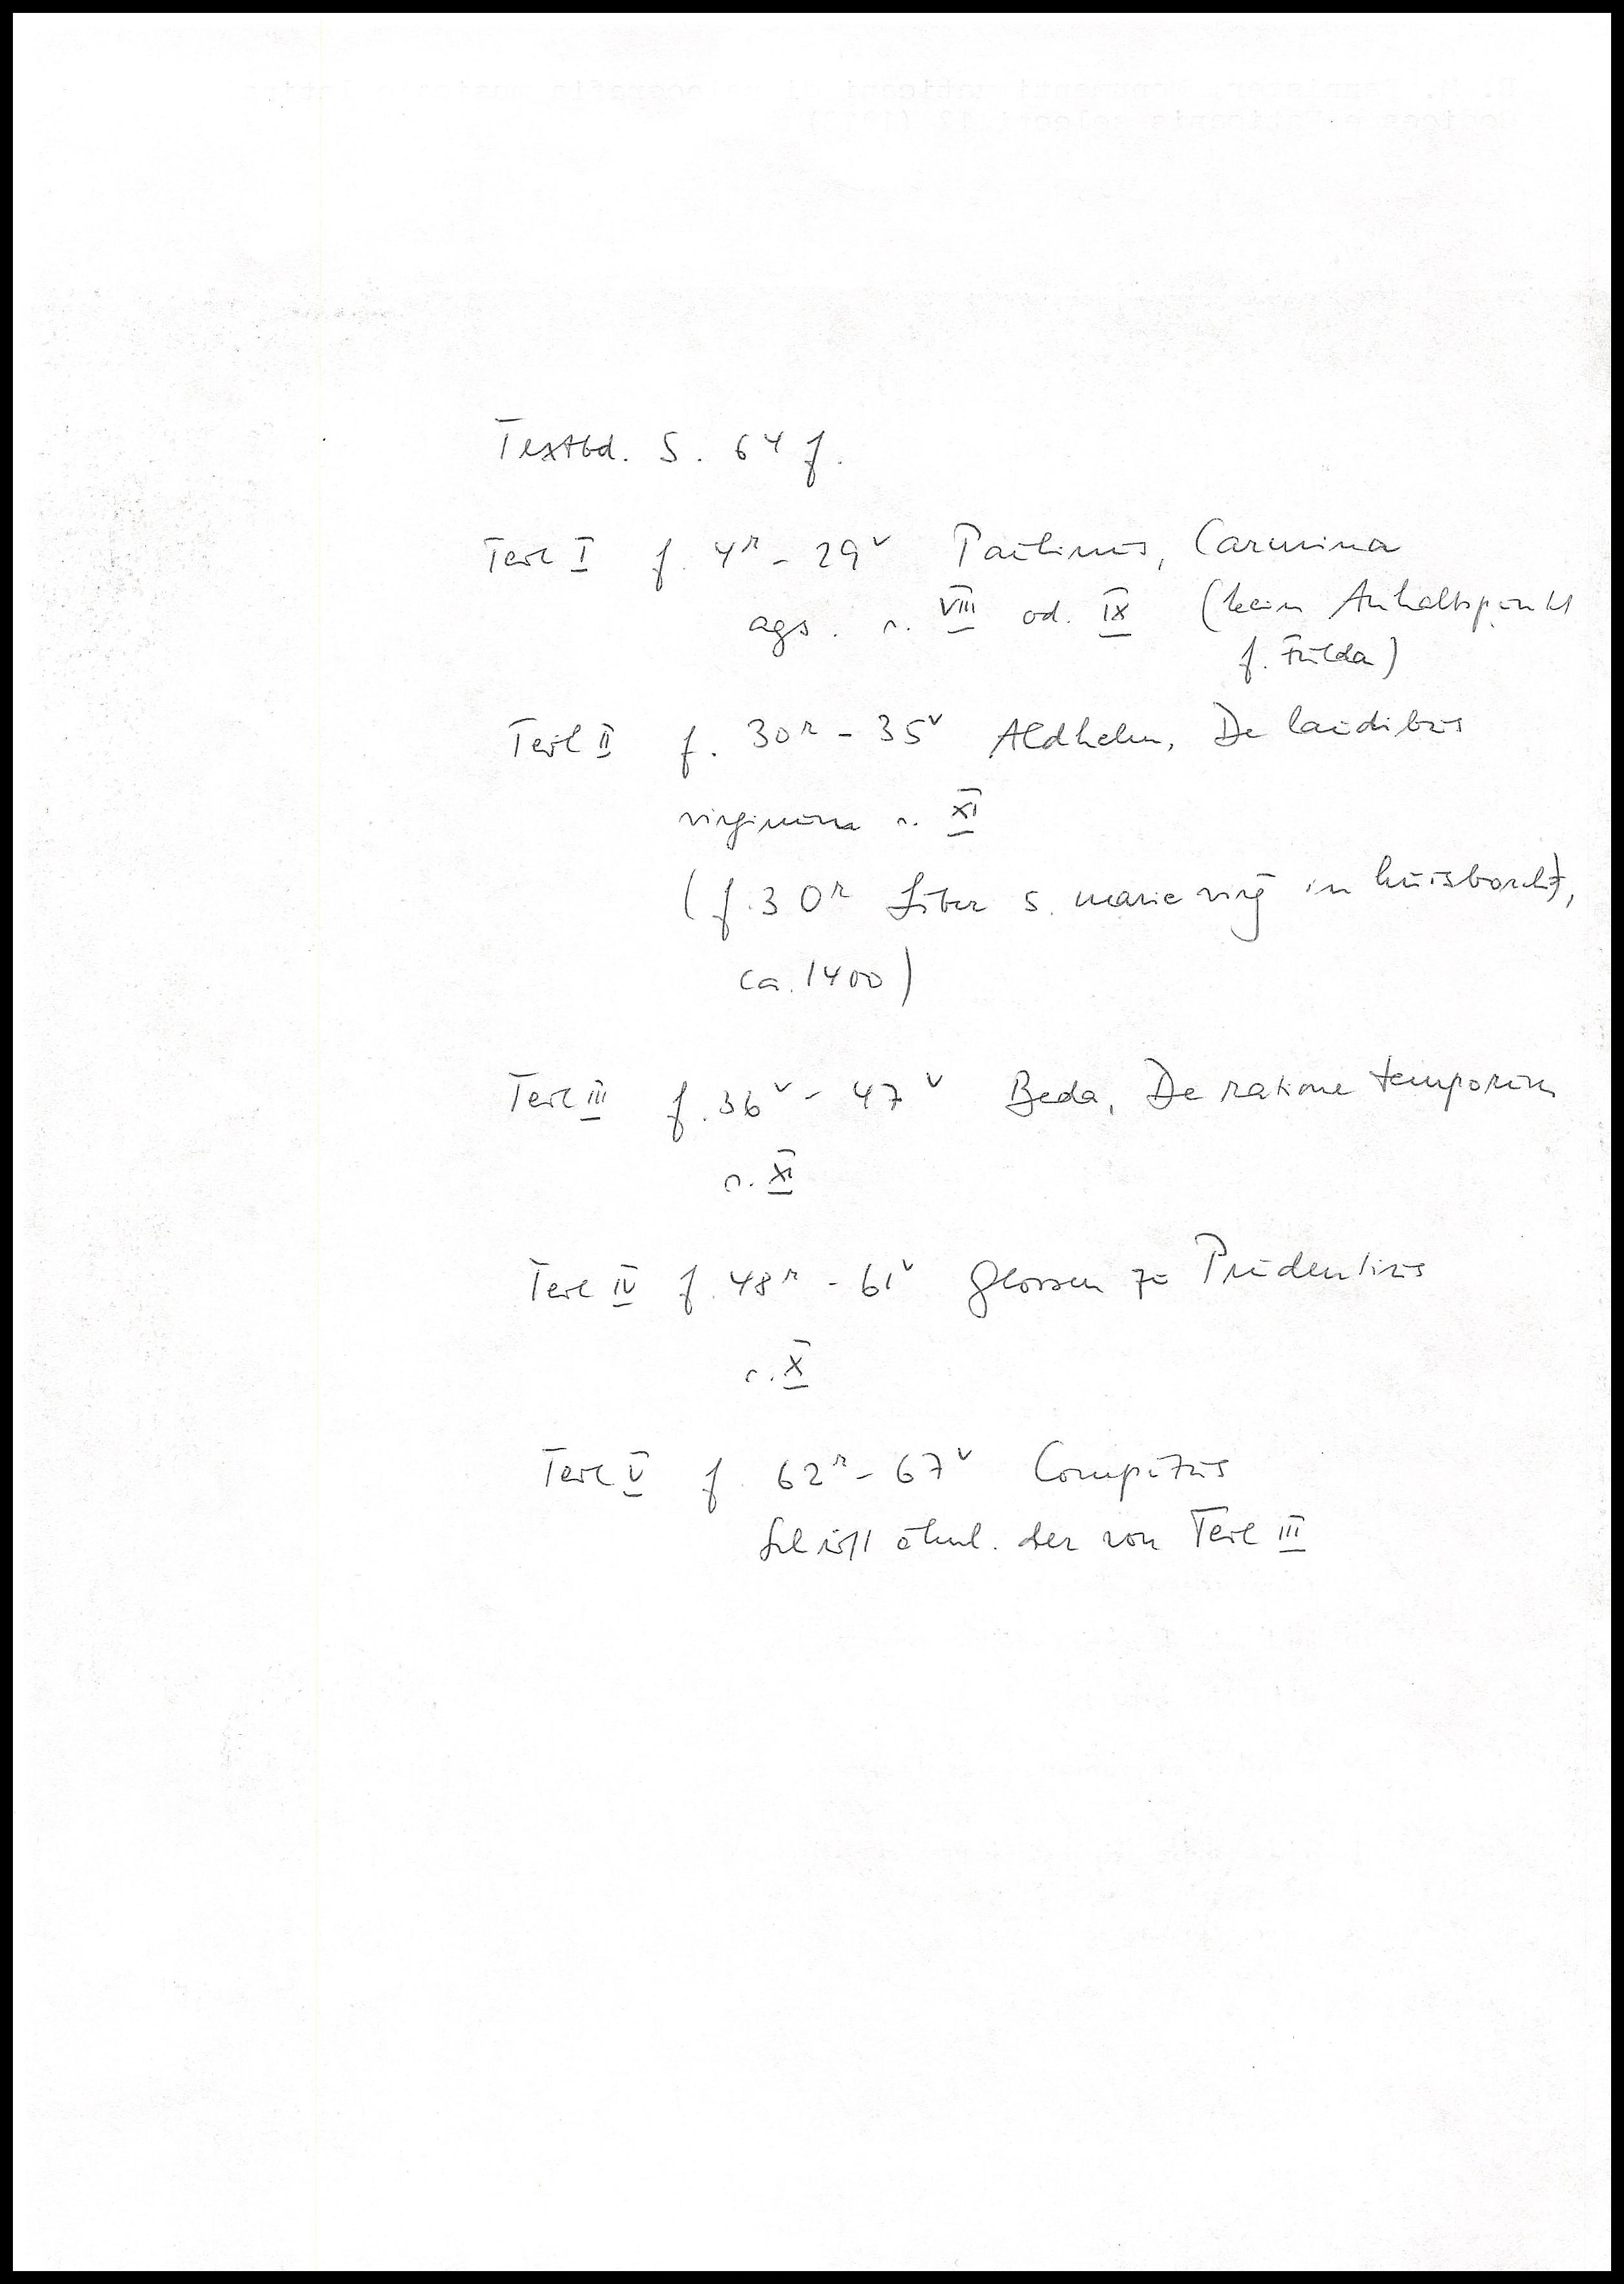 Textbd. S. 64 f.
Teil I f. 4r - 29v Paulinus, Carmina
ags. s. VIII od. IX (kein Anhaltspunkt
f. Fulda)
Teil II f. 30r - 35v Aldhelm, De laudibus
virginum s. XI
(f. 30r Liber s. marie virg in huisborch,
ca. 1400)
Teil III f. 36v - 47v Beda, De ratione temporum
s. XI
Teil IV f. 48r - 61v Glossen zu Prudentius
s. X
Teil V f. 62r - 67v Computus
Schrift ähnl. der von Teil III